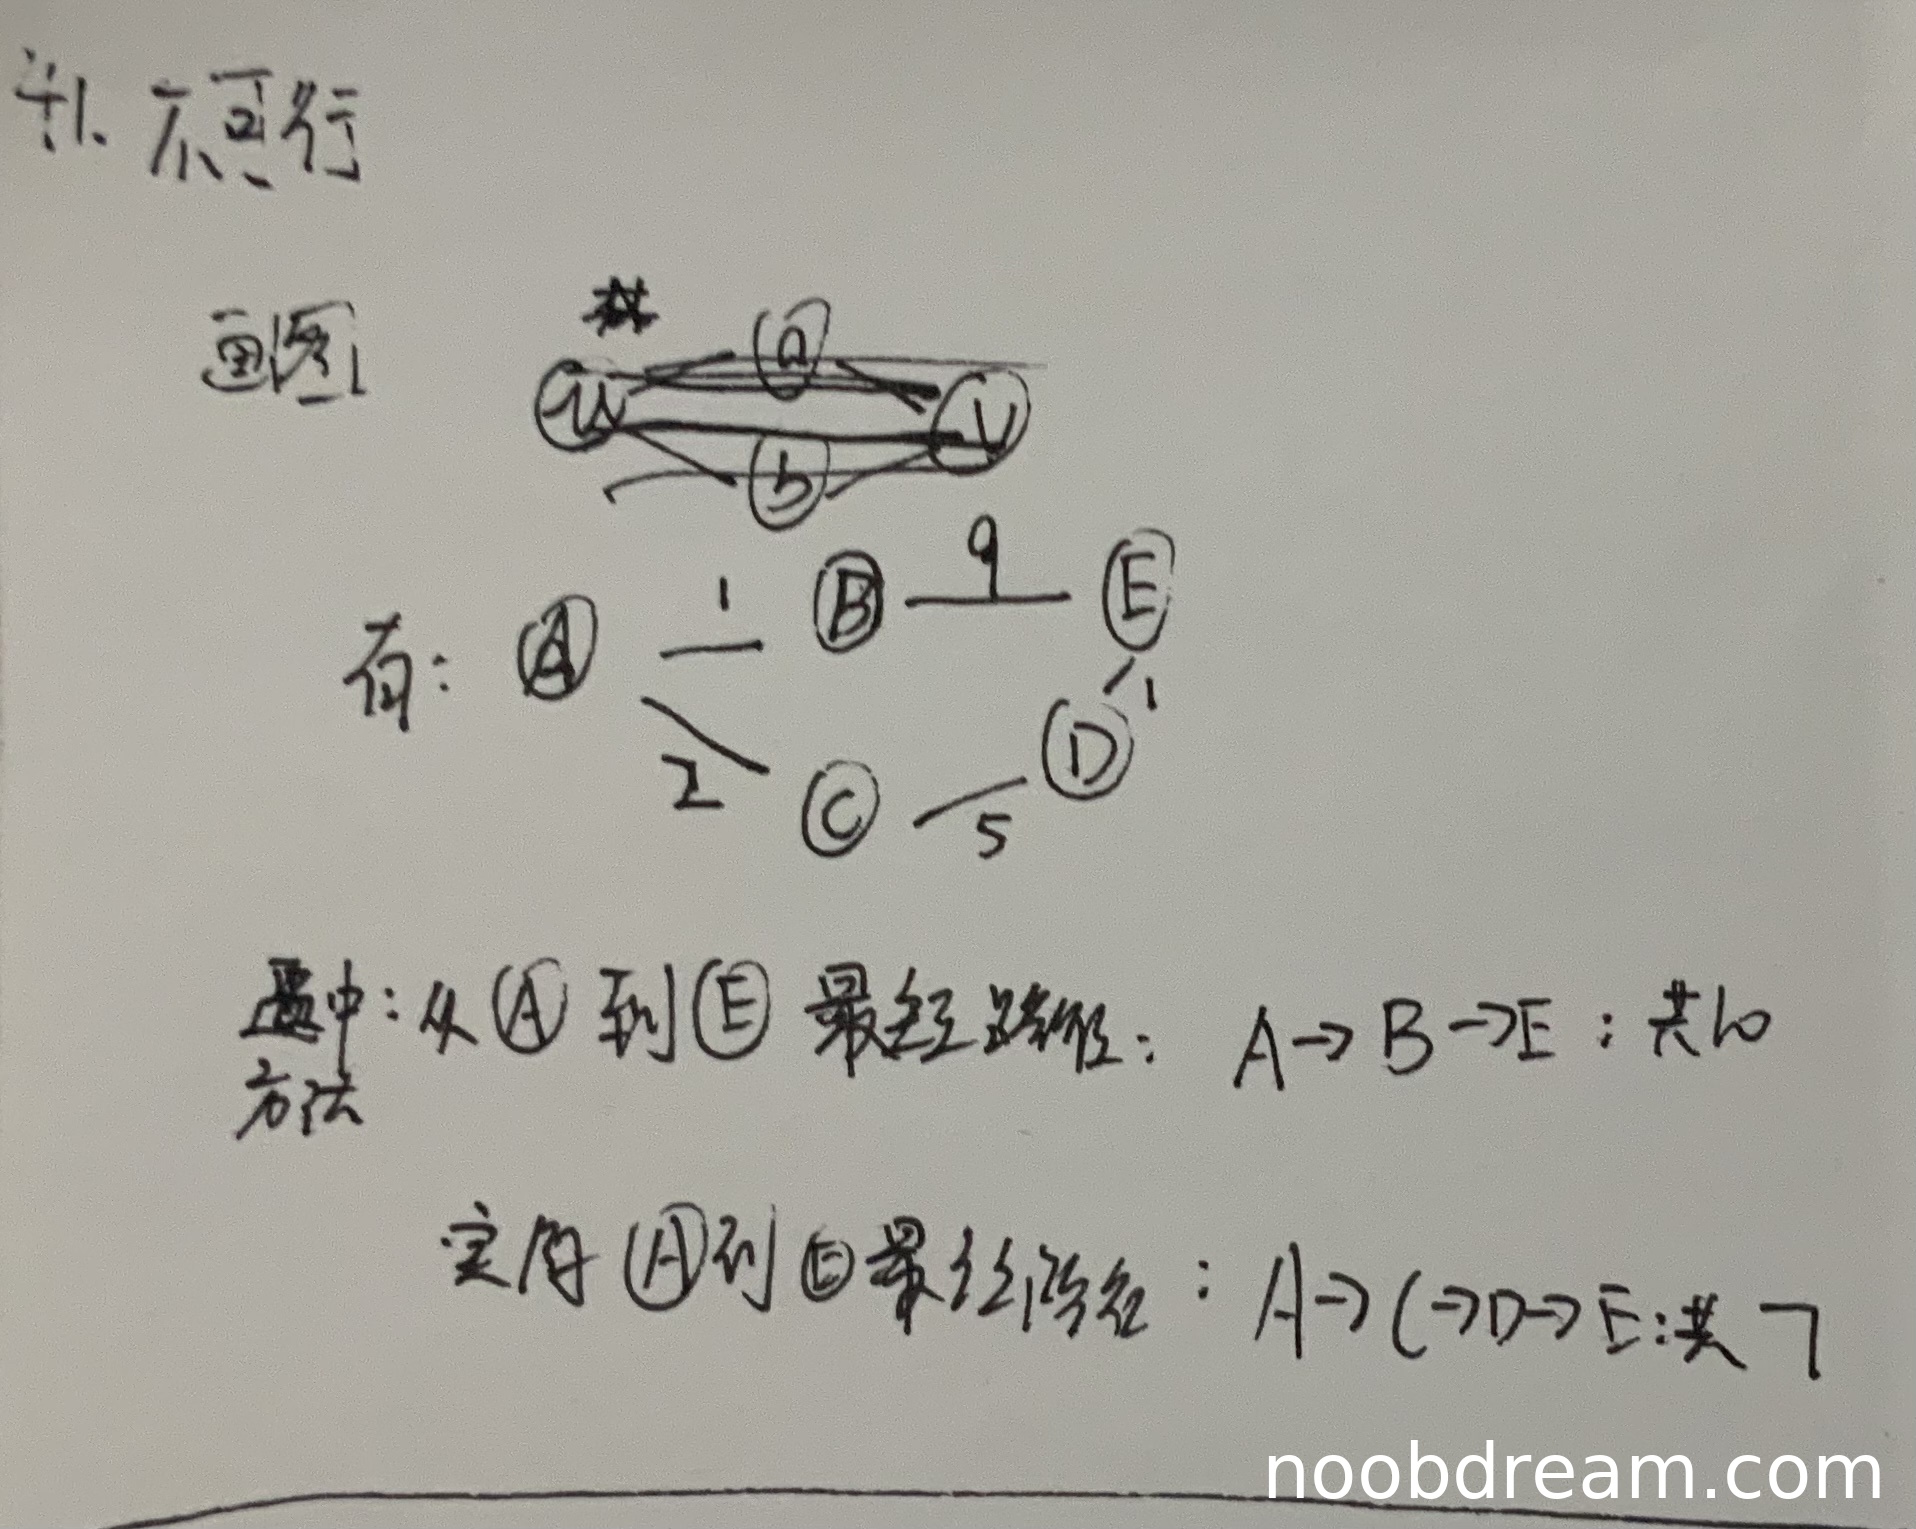 41. 不可行
画图
a
u V
b
有: A 1 B 9 E
1
D
2 C 5
题中: 从 A 到 E 最短路径: A→B→E : 共10
方法
实际 A 到 E 最短路径 : A→C→D→E:共7
noobdream.com